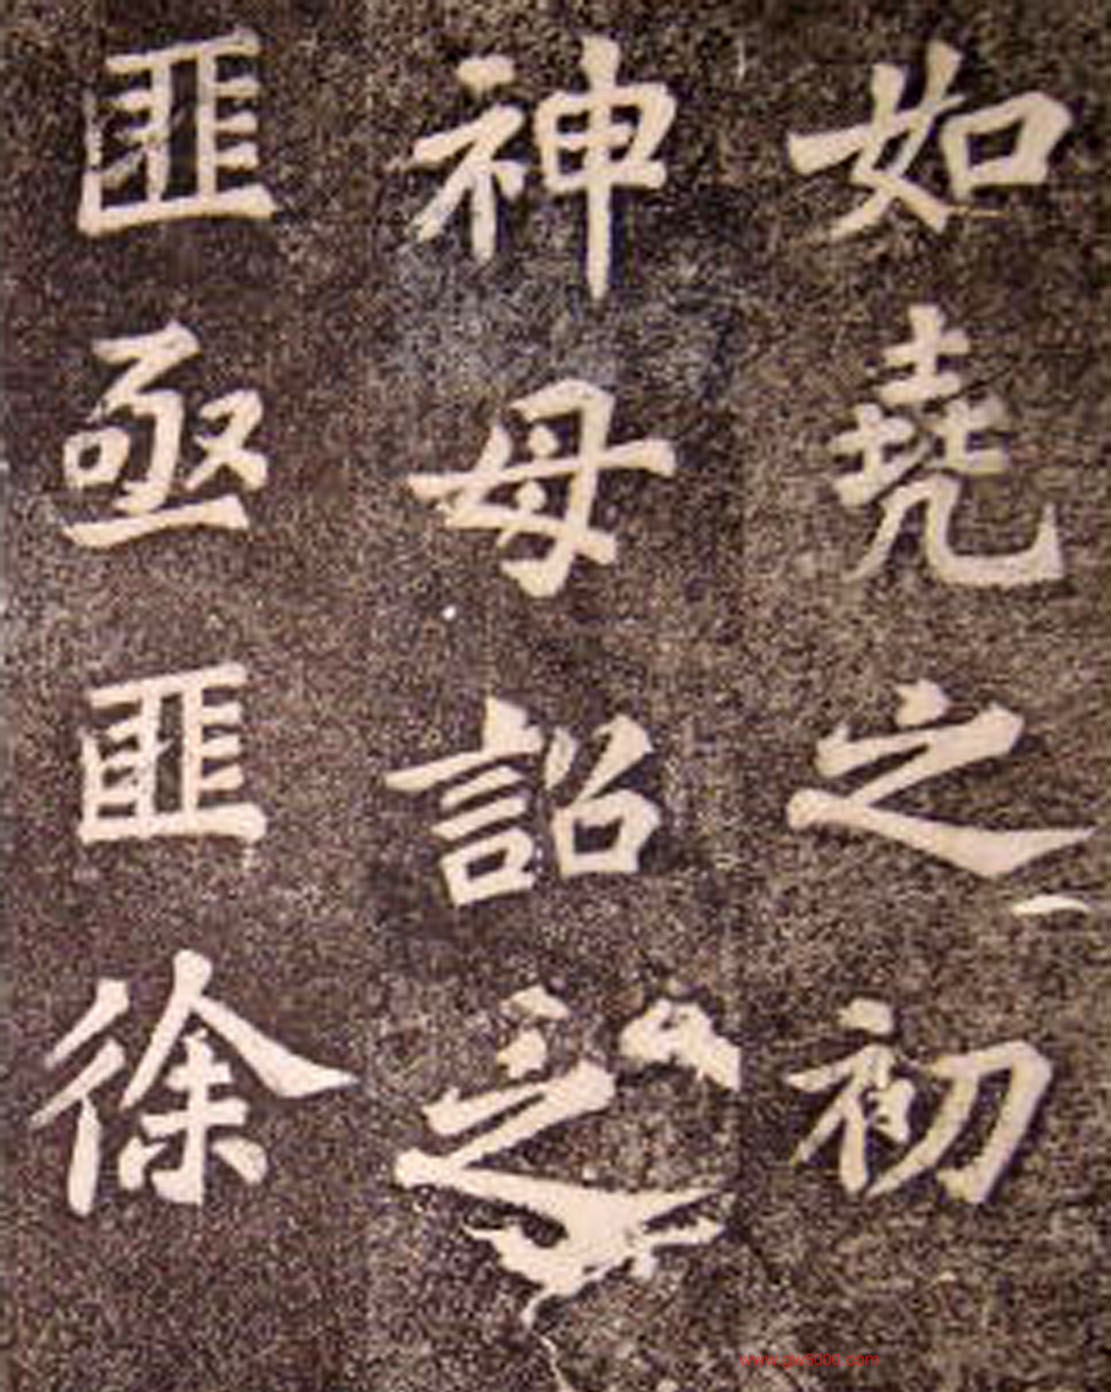 如堯之初
神母詔之
匪亟匪徐
www.gw5000.com